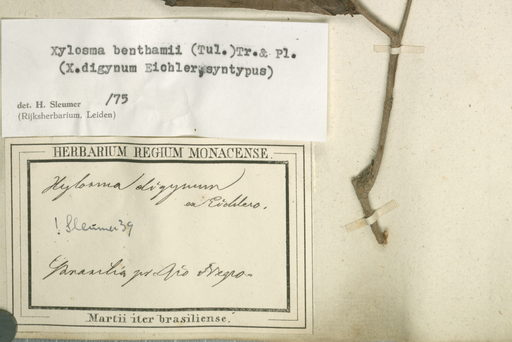 Xylosma benthamii (Tul.)Tr.& Pl.
(X.digynum Eichler,syntypus)
det. H. Sleumer /75
(Rijksherbarium, Leiden)
HERBARIUM REGIUM MONACENSE.
Xylosma digynum
ex Eichlero.
! Sleumer 39
Brasilia pr. Rio Negro
Martii iter brasiliense.